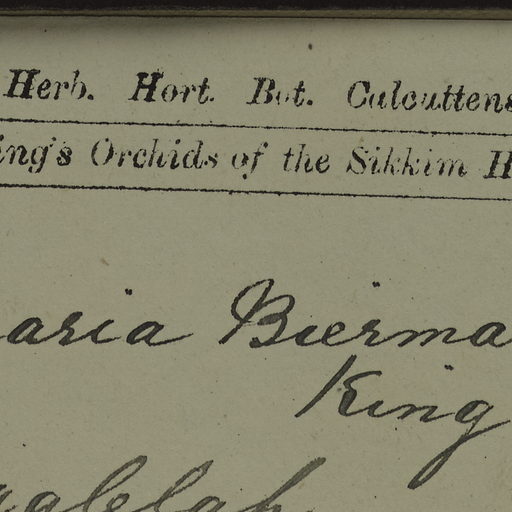 Herb. Hort. Bot. Calcuttens
ing's Orchids of the Sikkim H
aria Bierma
King